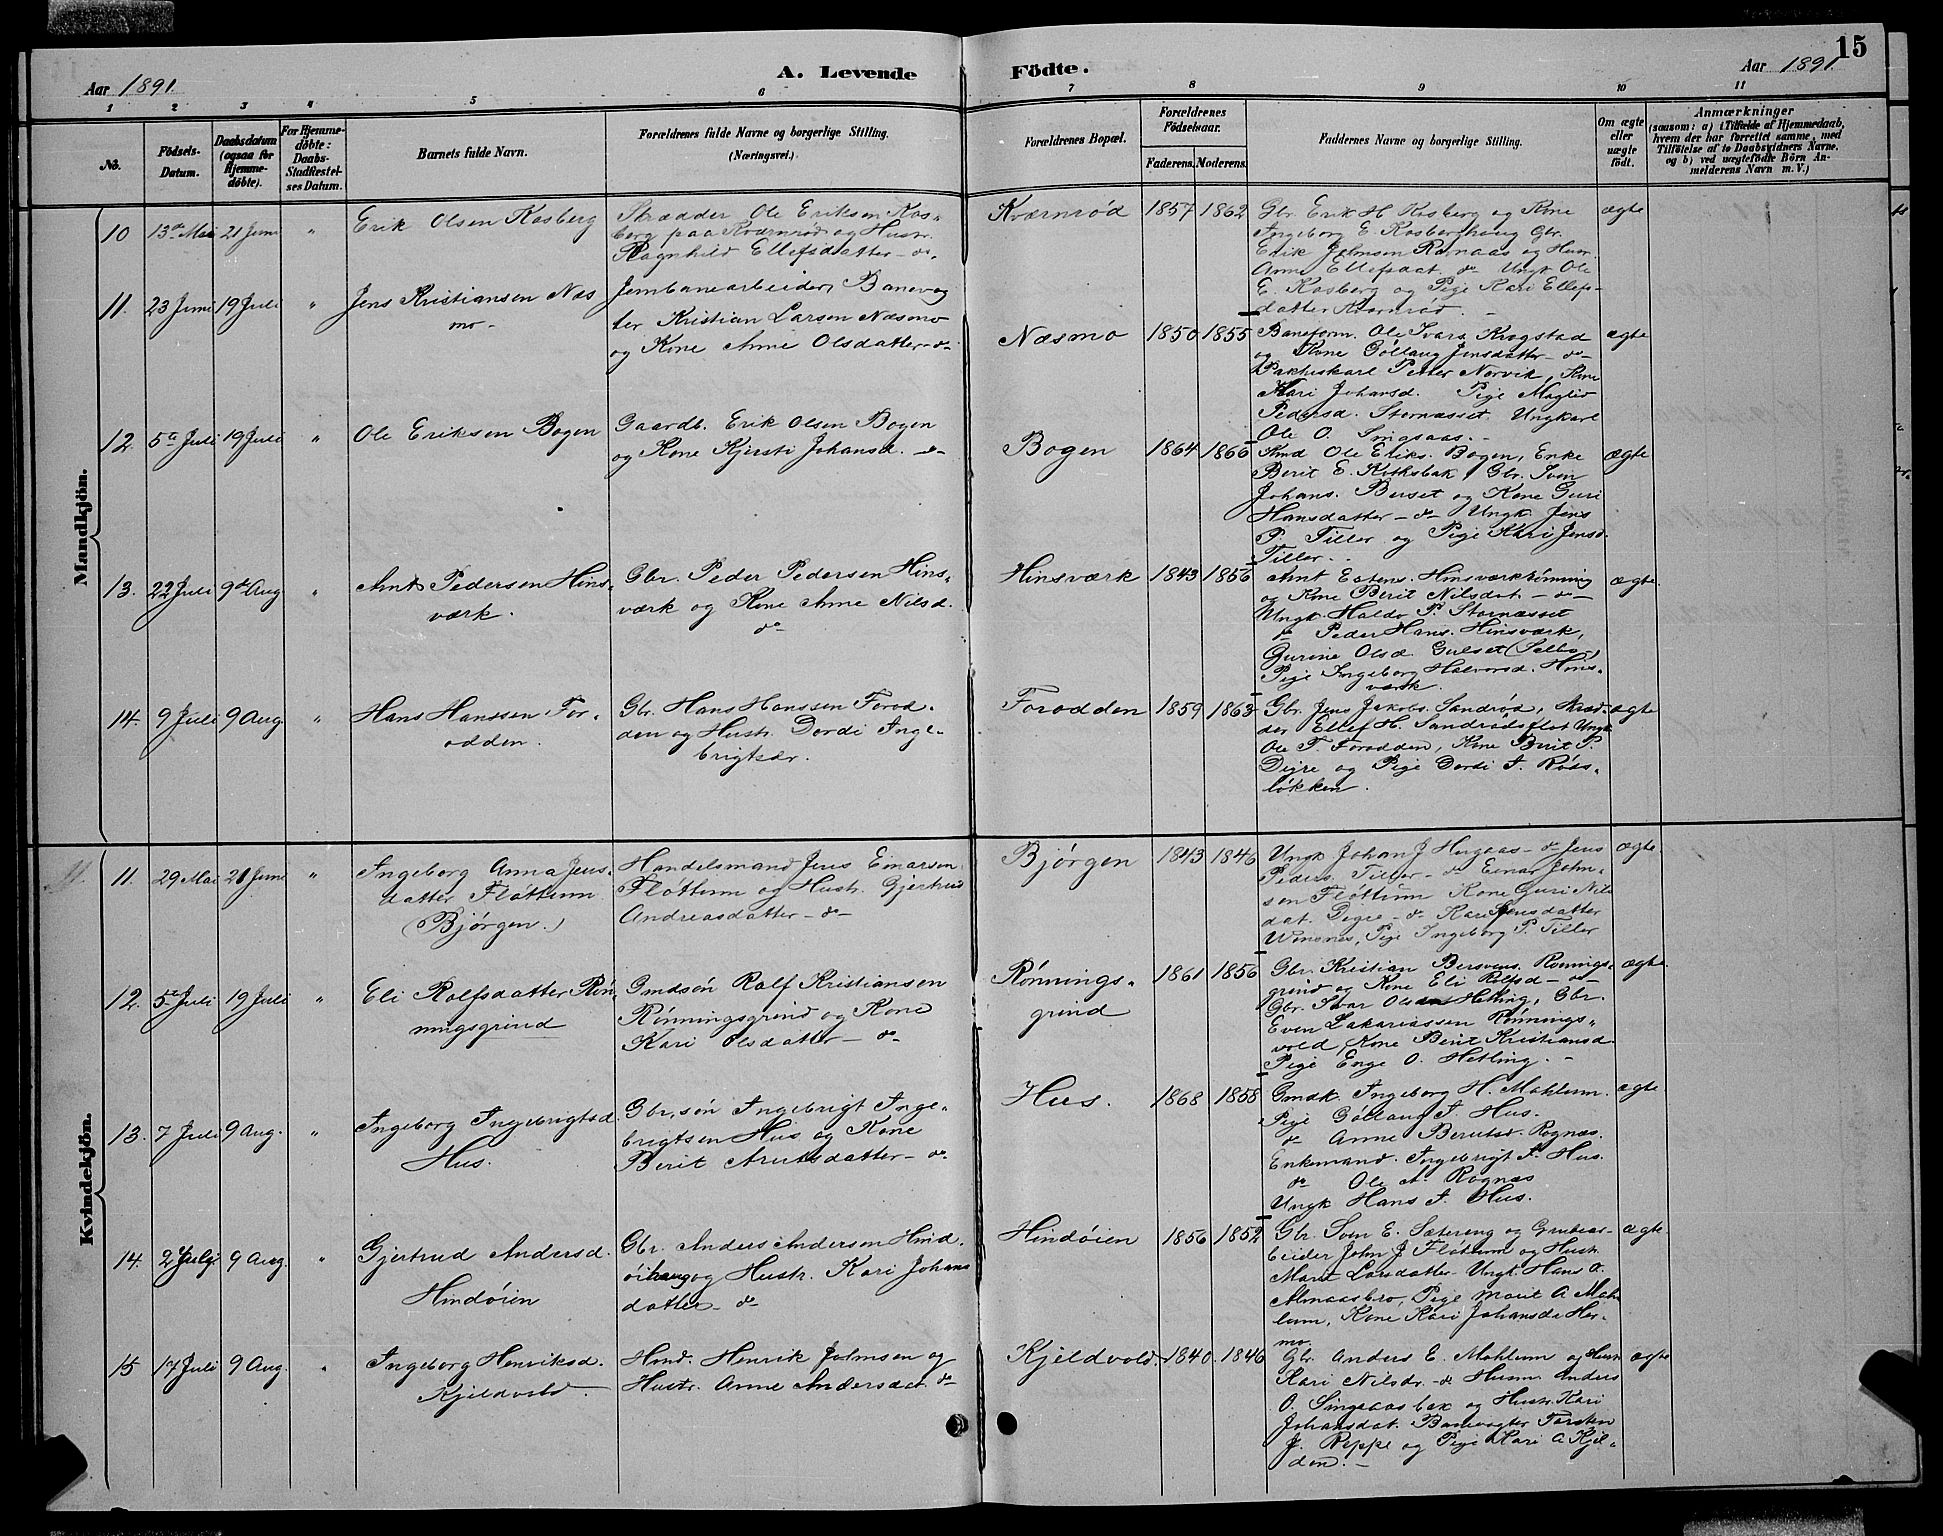 15
A. Levende Födte.
Aar 1891.
Aar 1891.
1 2 3 4 5 6 7 8 9 10 11
No.
Födsels-Datum.
Daabsdatum (ogsaa for Hjemme-döbte).
For Hjemme-döbte: Daabs-Stadfæstelses Datum.
Barnets fulde Navn.
Forældrenes fulde Navne og borgerlige Stilling. (Næringsvei.)
Forældrenes Bopæl.
Forældrenes Födselsaar.
Faderens. Moderens.
Faddernes Navne og borgerlige Stilling.
Om ægte eller uægte födt.
Anmærkninger
(saasom: a) i Tilfælde af Hjemmedaab, hvem der har forrettet samme, med Tilföielse af to Daabsvidners Navne, og b) ved uægtefödte Börn Anmelderens Navn m. V.)
Mandkjön.
10 13de Mai 21 Juni "
Erik Olsen Kosberg
Skrædder Ole Eriksen Kos-
berg paa Kværnrød og Hustr.
Ragnhild Ellefsdatter - do.
Kværnrød 1857 1862
Gbr. Erik H. Kosberg og Kone
Ingeborg E. Kosberghaug Gbr.
Erik Johnsen Ramaas og Hustr.
Anne Ellefsdat. do Ungk. Ole
E. Kosberg og Pige Kari Ellefs-
datter Kværnrød. -
ægte
11. 23 Juni 19 Juli "
Jens Kristiansen Næs
mo -
Jernbanearbeider, Banevog
ter Kristian Larsen Næsmo
og Kone Anne Olsdatter - do -
Næsmo 1850 1855
Baneform. Ole Ivars. Krogstad
og Kone Göllaug Jensdatter - do -
Pakhuskarl Petter Norvik, Kone
Kari Johansd. Pige Maglid
Pedersd. Stornæsset. Ungkarl
Ole O. Singsaas. -
ægte
12. 5te Juli 19 Juli "
Ole Eriksen Bogen
Gaardb. Erik Olsen Bogen
og Kone Kjersti Johansd. do -
Bogen 1864 1866
Kmd Ole Eriks. Bogen, Enke
Berit E. Kirksbak, Gbr. Iven
Johans. Burset og Kone Guri
Hansdatter - do - Ungk. Jens
P. Tiller og Pige Kari Jensd.
Tiller. -
ægte
13. 22 Juli 9de Aug "
Arnt Pedersen Hins-
værk.
Gbr. Peder Pedersen Hins-
værk og Kone Anne Nilsd.
do -
Hinsværk 1843 1856
Arnt Estens. Hinsværkrönning
og Kone Berit Nilsdat. - do -
Ungk. Haldo P. Stornæsset
do Peder Hans. Hinsværk,
Gurine Olsd. Gulset (Selbo)
Pige Ingeborg Halvorsd. Hins-
værk.
ægte
14. 9 Juli 9 Aug. "
Hans Hanssen For-
odden.
Gbr. Hans Hanssen Forod-
den og Hustr. Dordi Inge-
brigtsdr.
Forodden 1859 1863
Gbr. Jens Jakobs. Sandrød, Skræd-
der Ellef H. Sandrødsflot Ungk.
Ole T. Forodden, Kone Berit P.
Digre og Pige Dordi I. Røds-
løkken.
ægte
Kvindekjön.
11. 29 Mai 21 Juni "
Ingeborg Anna Jens-
datter Fløttum
(Bjørgen.)
Handelsmand Jens Einarsen
Fløttum og Hustr. Gjertrud
Andreasdatter - do -
Bjørgen 1843 1846
Ungk. Johan J. Hugaas - do Jens
Peders. Tiller - do Einar John-
sen Fløttum Kone Guri Nils
dat. Digre - do Kari Jensdatter
Winsnes, Pige Ingeborg P. Tiller
ægte.
12. 5te Juli 19 Juli "
Eli Rolfsdatter Røn-
ningsgrind
Gmdsøn Rolf Kristiansen
Rønningsgrind og Kone
Kari Olsdatter - do -
Rønnings-
grind
1861 1856
Gbr. Kristian Bersvens. Rønnings-
grind og Kone Eli Rolfsd - do -
Gbr. Ivar Olsen Hetling, Gbr.
Even Zakariassen Rønnings-
vold, Kone Berit Kristiansd.
Pige Enge O. Hetling. -
ægte.
13. 7 Juli 9 Aug. "
Ingeborg Ingebrigtsd.
Hus.
Gbr. søn Ingebrigt Inge-
brigtsen Hus og Kone
Berit Arntsdatter - do -
Hus. 1868 1858
Gmdk. Ingeborg H. Mohlum.
Pige Göllaug I. Hus.
do Anne Berntsd. Rognæs.
Enkemand. Ingebrigt I. Hus.
do Ole A. Rognæs
Ungk Hans I. Hus.
ægte.
14. 2 Juli 9 Aug. "
Gjertrud Andersd.
Hindøien
Gbr. Anders Andersen Hind-
øihaug og Hustr. Kari Johans
datter - do -
Hindøien 1856 1852
Gbr. Sven E. Sætereng og Grubear-
beider John J. Fløttum og Hustr.
Marit Larsdatter Ungk. Hans O.
Almaasbro, Pige Marit A. Moh-
lum, Kone Kari Johansdr. Her-
mo.
ægte
15 17 Juli 9 Aug. "
Ingeborg Henriksd.
Kjeldvold. -
Hmd. Henrik Johnsen og
Hustr. Anne Andersdat. do -
Kjeldvold. 1840. 1846
Gbr. Anders E. Mohlum og Hustr.
Kari Nilsdr. do Husm. Anders
O. Singsaasbak og Hustr. Kari
Johansdat. Banevogter Torsten
J. Reppe og Pige Kari A. Kjel-
den. -
ægte